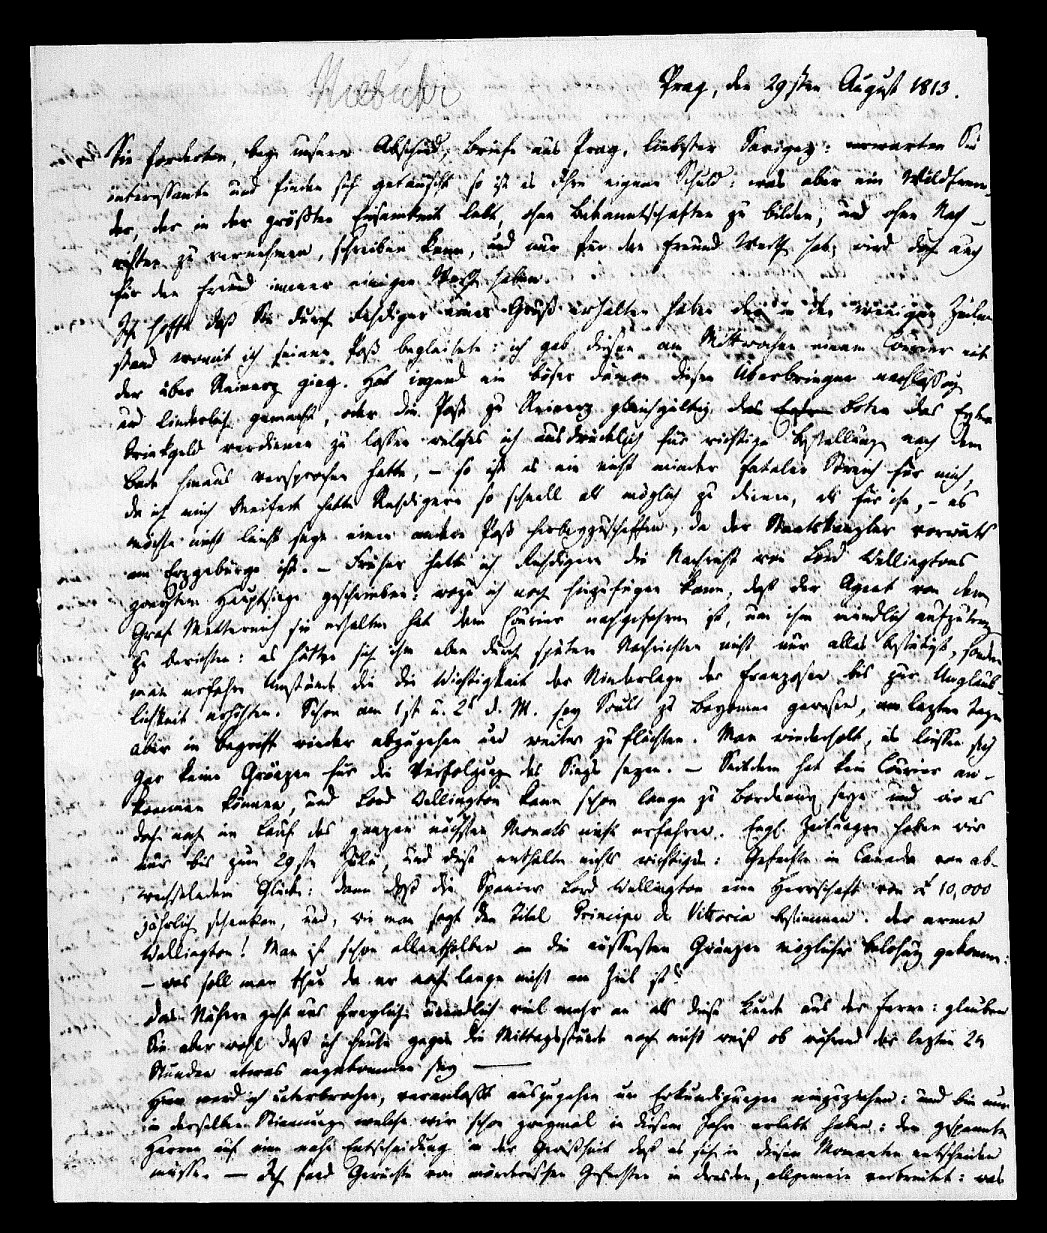 Niebuhr
Prag, den 29sten August 1813.
Sie forderten, bey unserm Abschied, Briefe aus Prag, liebster Savigny: erwarten Sie
interessante und finden sich getäuscht so ist es Ihre eigene Schuld: was aber ein Wildfrem-
der, der in der größten Einsamkeit lebt, ohne Bekanntschaften zu bilden, und ohne Nach-
richten zu vernehmen, schreiben kann, und nur für den Freund Werth hat, wird doch auch
für den Freund immer einigen Werth haben.
Ich hoffe daß Sie durch Rehdiger einen Gruß erhalten haben der in den wenigen Zeilen
stand womit ich seinen Paß begleitete: ich gab diesen am Mittwochen einem Courier mit
der über Reinerz ging. Hat irgend ein böser Dämon diesen Überbringer nachlässig
und liederlich gemacht, oder die Post zu Reinerz gleichgültig das Boten das Extra
Trinkgeld verdienen zu lassen welches ich ausdrücklich für richtige Bestellung nach dem
Bade hinaus versprochen hatte, – so ist es ein nicht minder fataler Streich für mich,
da ich mich beeifert hatte Rehdigern so schnell als möglich zu dienen, als für ihn, – es
möchte nicht leicht seyn einen andern Paß herbeyzuschaffen, da der Staatskanzler vorwärts
im Erzgebürge ist. – Früher hatte ich Rehdigern die Nachricht von Lord Wellingtons
zweyten Hauptsiege geschrieben: wozu ich noch hinzufügen kann, daß der Agent von dem
Graf Metternich sie erhalten hat dem Courier nachgefahren ist, um ihm mündlich aufzutragen
zu berichten: es hätten sich ihm eben durch spätere Nachrichten nicht nur alles bestätigt, sondern
man erfahre Umstände die die Wichtigkeit der Niederlage der Franzosen bis zur Unglaub-
lichkeit erhöhten. Schon am 1st u. 2t d. M. sey Soult zu Bayonne gewesen, am lezten Tage
aber im Begriff wieder abzugehen und weiter zu flüchten. Man wiederholt, es lassen sich
gar keine Gränzen für die Verfolgung des Siegs sezen. – Seitdem hat kein Courier an-
kommen können, und Lord Wellington kann schon lange zu Bordeaux seyn und wir es
doch noch im Lauf des ganzen nächsten Monats nicht erfahren. Engl. Zeitungen haben wir
nur bis zum 29ste Julii, und diese enthalten nichts wichtiges: Gefechte in Canada von ab-
wechselndem Glücke: dann daß die Spanier Lord Wellington eine Herrschaft von 10,000
jährlich schenken, und, wie man sagt den Titel Principe de Vittoria bestimmen: der arme
Wellington! Man ist schon allenthalben an die äussersten Gränzen möglicher Belohnung gekommen:
– was soll man thun da er noch lange nicht am Ziel ist?
Das Nähere geht uns freylich unendlich viel mehr an als diese Kunde aus der Ferne: glauben
Sie aber wohl daß ich heute gegen die Mittagsstunde noch nicht weiß ob während der lezten 24
Stunden etwas angekommen sey –
Hier ward ich unterbrochen, veranlaßt auszugehen um Erkundigungen einzuziehen: und bin nun
in derselben Stimmung welche wir schon zweymal in diesem Jahr erlebt haben: dem gespannten
Harren auf eine nahe Entscheidung in der Gewißheit daß es sich in diesen Momenten entscheiden
müsse. – Ich fand Gerüchte von mörderischen Gefechten in Dresden, allgemein verbreitet: was